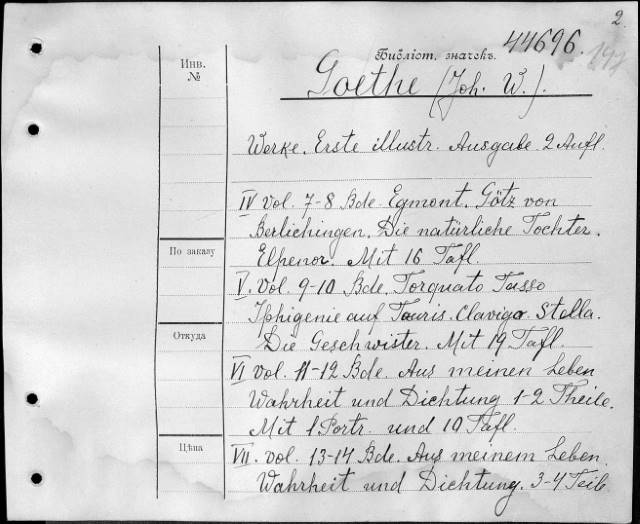 2.
44696.
197
Инв.
№
Библіот. значекъ.
Goethe (Joh. W.).
Werke. Erste illustr. Ausgabe. 2 Aufl.
IV Vol. 7-8 Bde. Egmont. Götz von
Berlichingen. Die natürliche Tochter.
По заказу
Elpenor. Mit 16 Tafl.
V. Vol. 9-10 Bde. Torquato Tasso
Iphigenie auf Tauris. Clavigo. Stella.
Откуда
Die Geschwister. Mit 19 Tafl.
VI Vol. 11-12 Bde. Aus meinen Leben
Wahrheit und Dichtung 1-2 Theile.
Mit 1 Portr. und 10 Tafl.
Цѣна
VII. vol. 13-14 Bde. Aus meinem Leben.
Wahrheit und Dichtung. 3-4 Teil